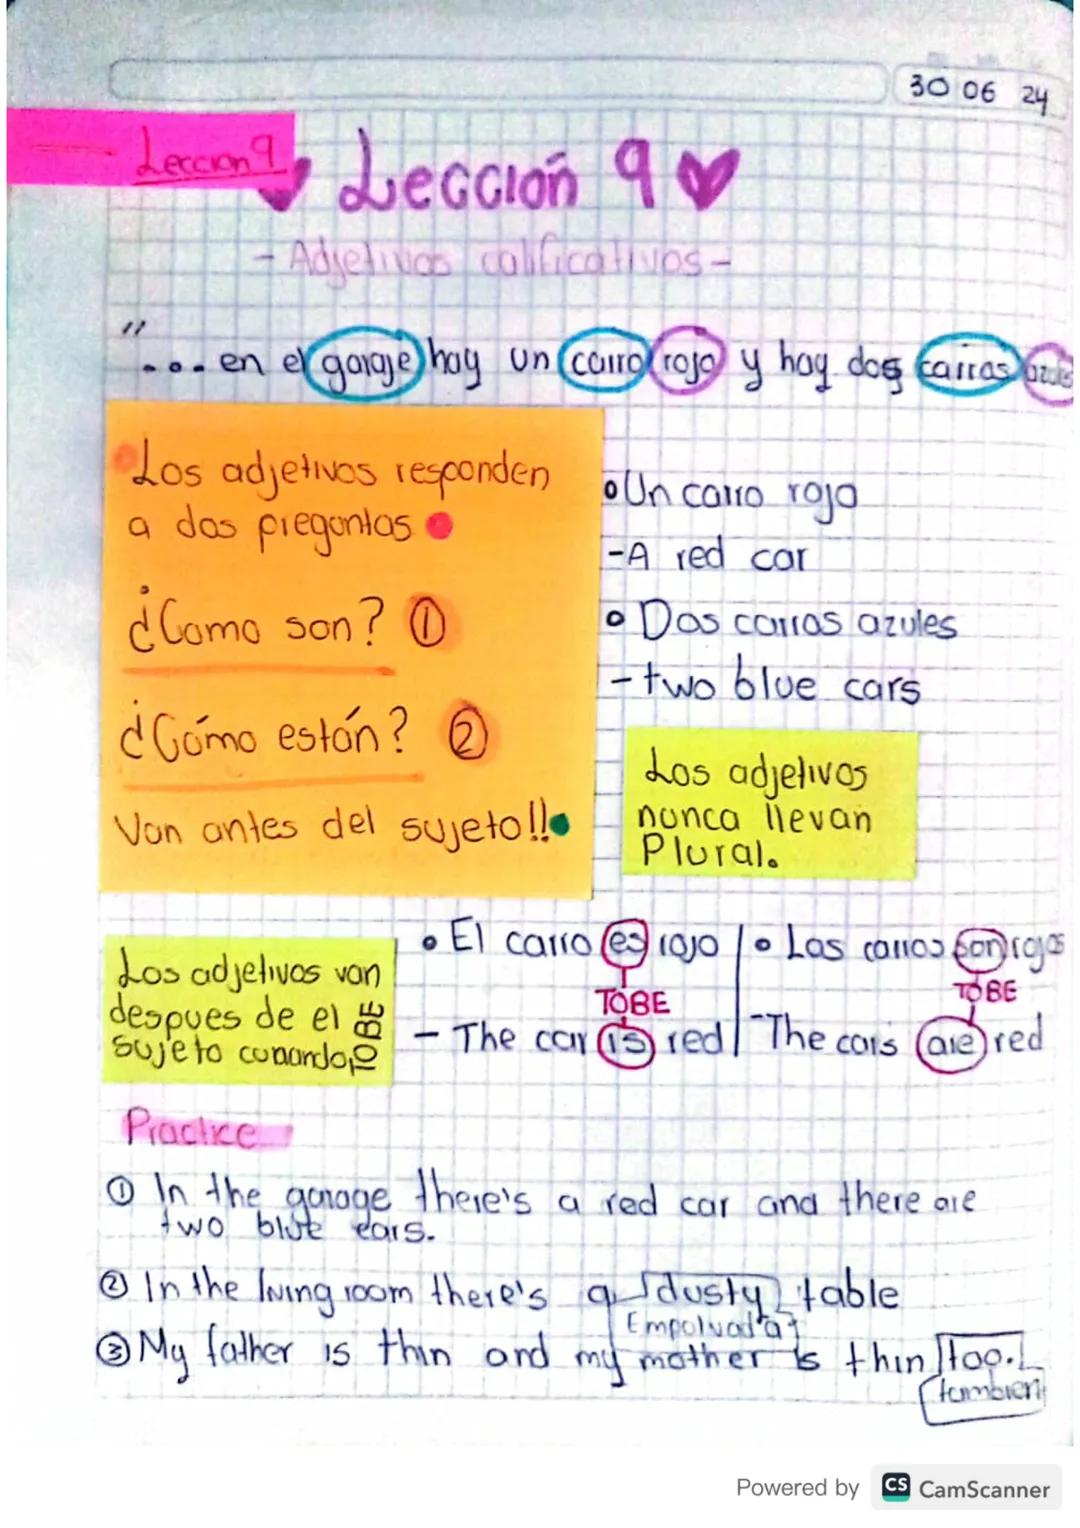 30 06 24
Leccion 9
Lección 9
- Adjetivos calificativos -
"... en el garaje hay un carro rojo y hay dos carros azules
Los adjetivos responden
a dos preguntas
¿Como son? ①
¿Cómo están? ②
Van antes del sujeto!!
• Un carro rojo
- A red car
• Dos carros azules
- two blue cars
Los adjetivos
nunca llevan
Plural.
Los adjetivos van
despues de el
sujeto cunando, TO BE
• El carro es rojo
TOBE
- The car is red
• Los carros son rojos
TOBE
- The cars are red
Practice
① In the garage there's a red car and there are
two blue cars.
② In the living room there's a dusty table
Empolvada
③ My father is thin and my mother is thin too.
tambien
Powered by CS CamScanner